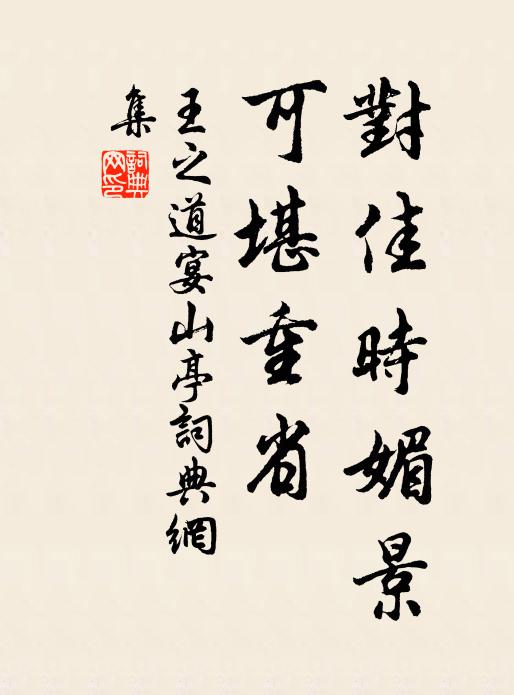 對佳時媚景
可堪重省
王之道宴山亭詞典網
集
詞典
网印